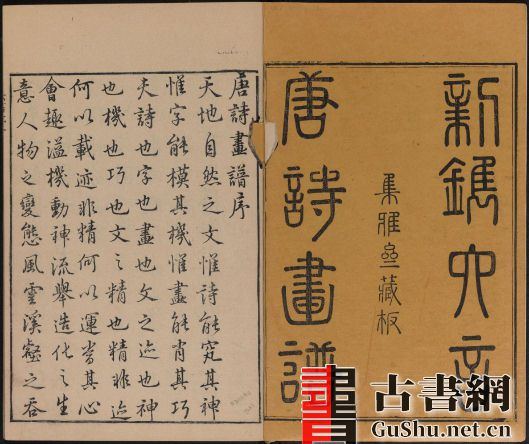 新鐫六言
集雅齋藏板
唐詩畫譜
唐詩畫譜序
天地自然之文惟詩能究其神
惟字能模其機惟畫能肖其巧
夫詩也字也畫也文之迹也神
也機也巧也文之精也精非迹
何以載迹非精何以運當其心
會趣溢機動神流舉造化之生
意人物之變態風雲溪壑之吞
古書網
GuShu.net.cn